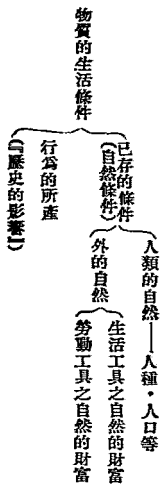 物質的生活條件
已存的條件
(自然條件)
人類的自然——人種·人口等
外的自然
生活工具之自然的財富
勞動工具之自然的財富
行爲的所產
(『歷史的影響』)